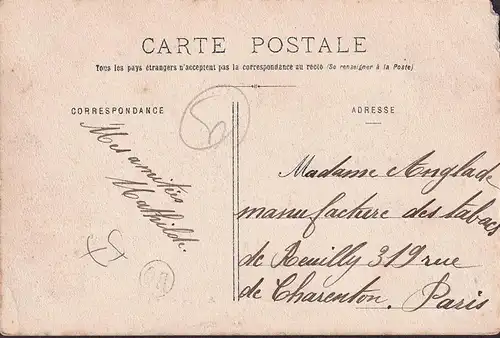 CARTE POSTALE
Tous les pays étrangers n'acceptent pas la correspondance au recto (Se renseigner à la Poste)
CORRESPONDANCE
ADRESSE
Mes amitiés
Mathilde
Madame Anglade
manufacture des tabacs
de Reuilly 319 rue
de Charenton. Paris